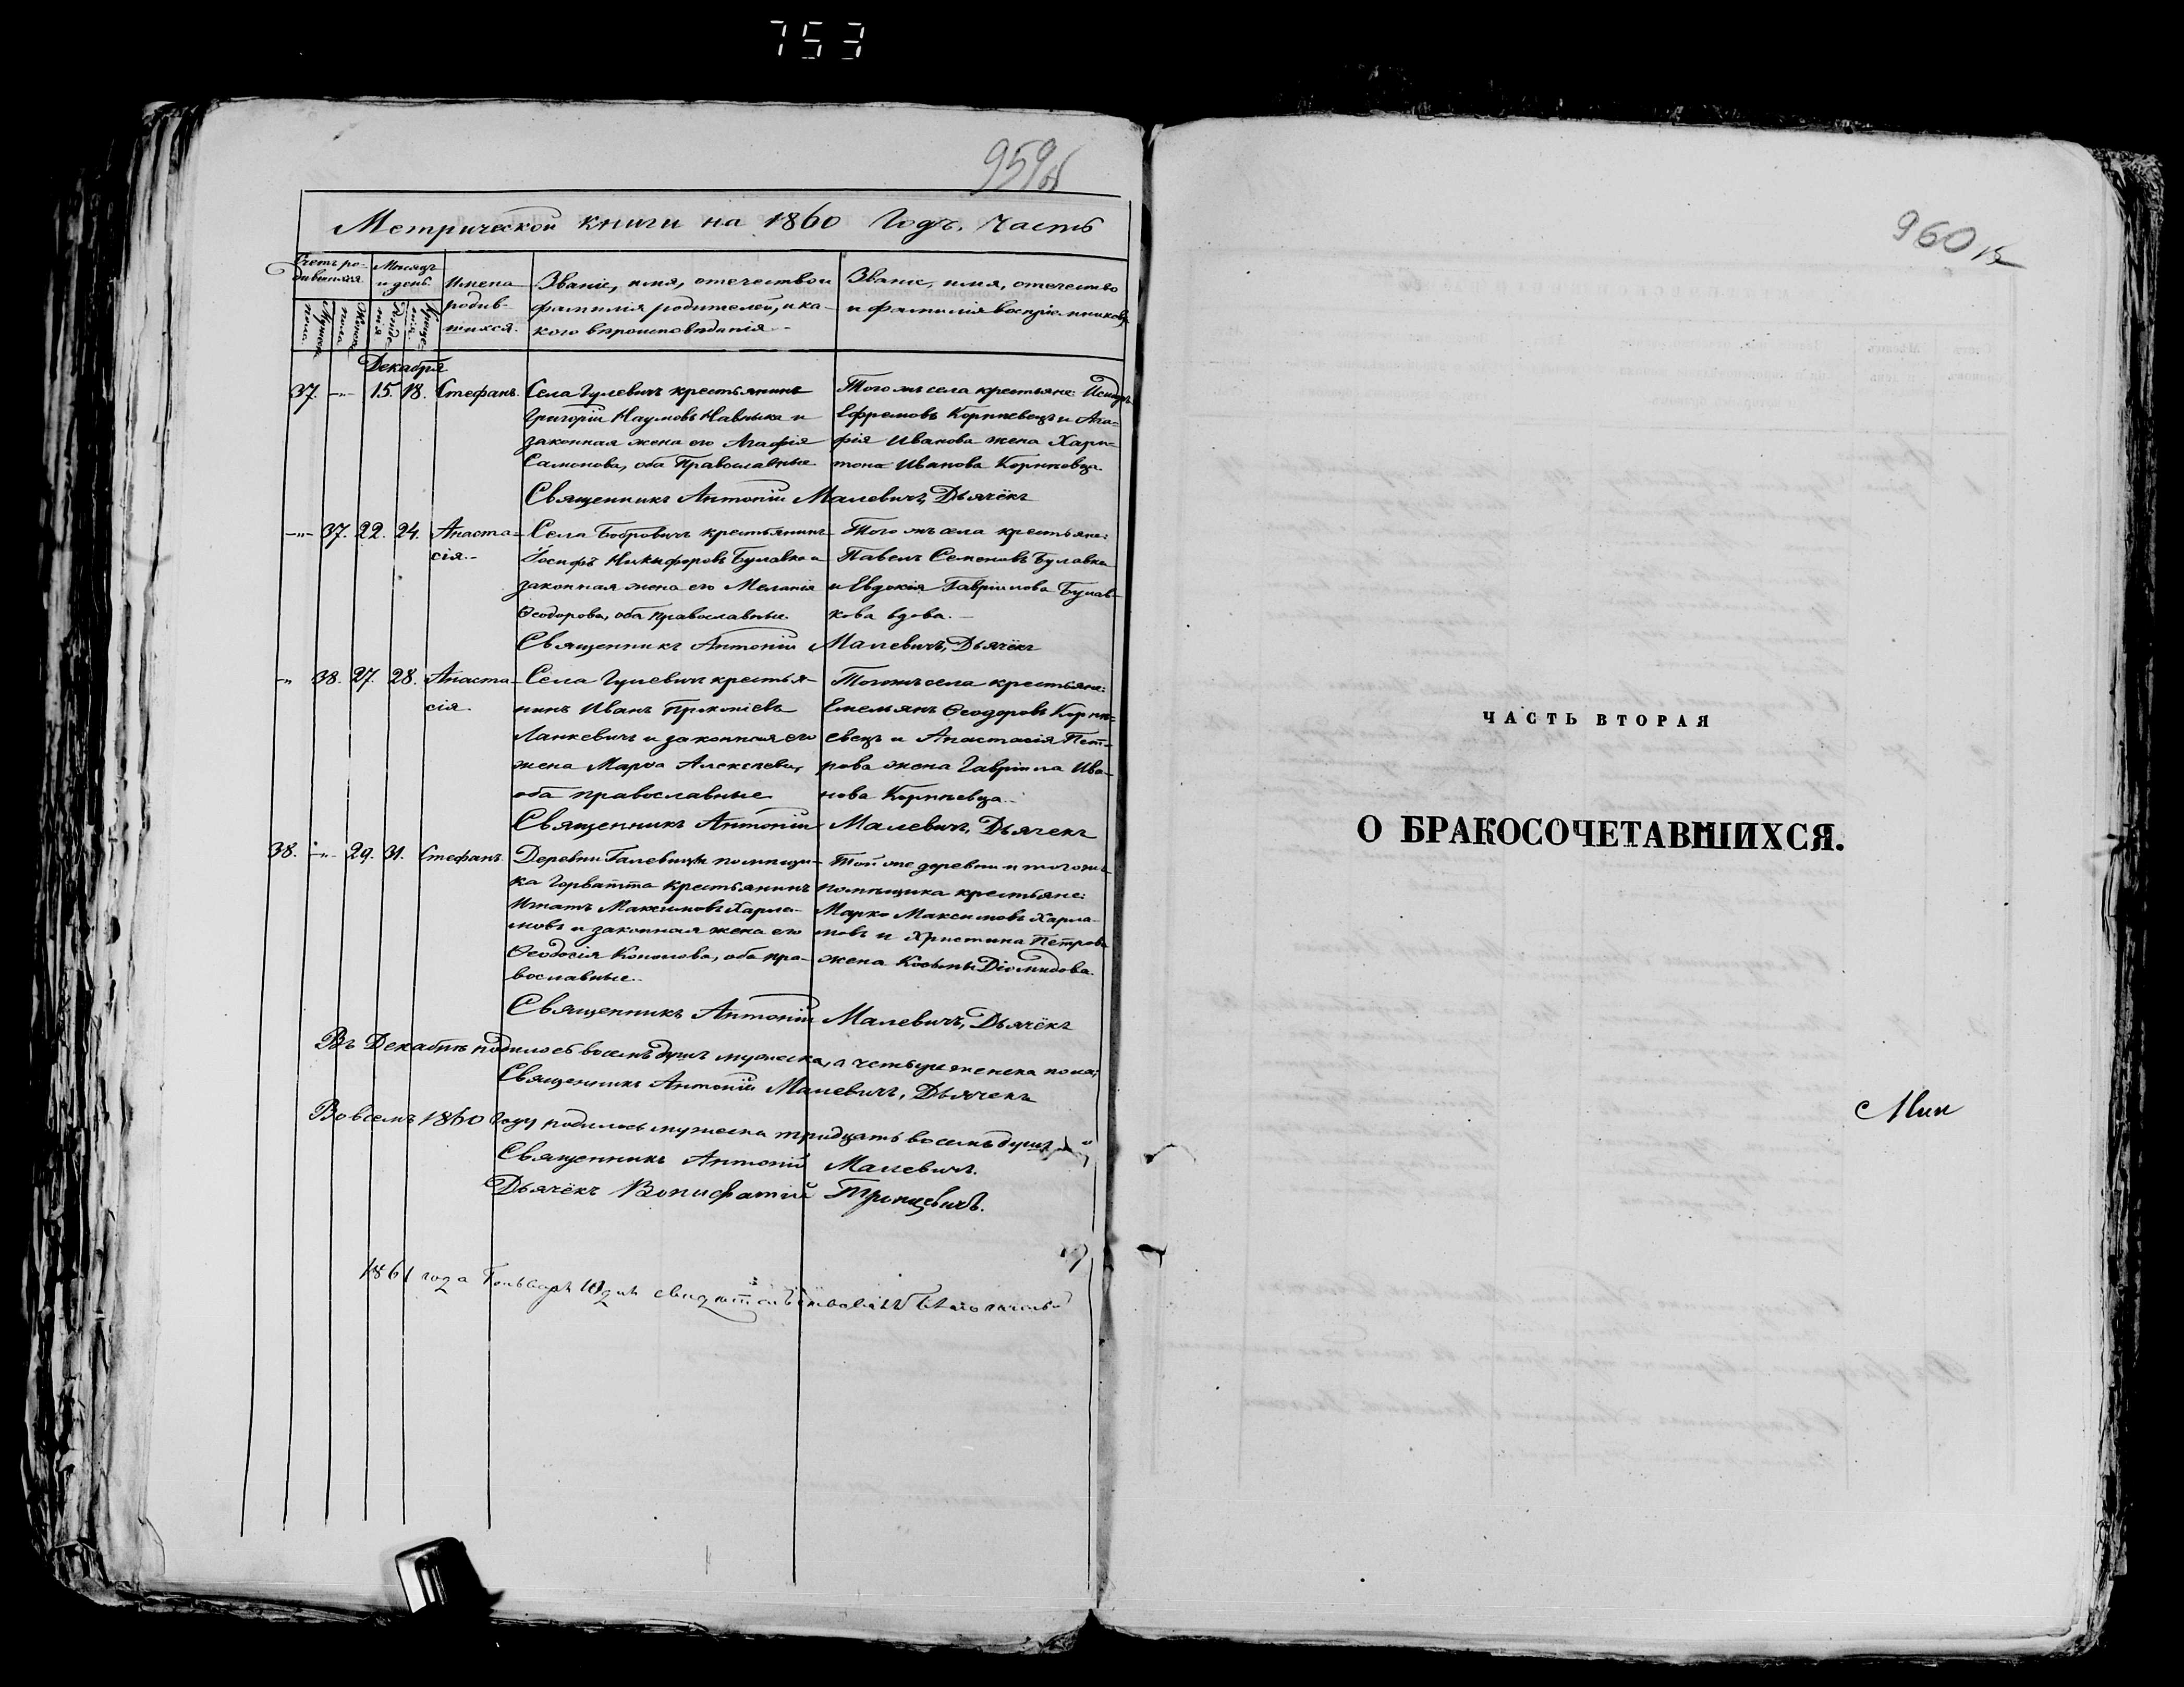 753
959об
Метрической книги на 1860 Годъ. Часть
Счетъ ро-
дившихся.
Мужеска
пола.
Женска
пола.
Месяцъ
и день.
Рожде-
нія.
Креще-
нія.
Имена
родив-
шихся.
Званіе, имя, отечество и
фамилія родителей, и ка-
кого вѣроисповѣданія.
Званіе, имя, отечество
и фамилія воспріемниковъ
Декабря
37. -"- 15. 18. Стефанъ.
Села Гулевичъ крестьянинъ
Григорій Наумовъ Навныка и
законная жена его Агафія
Самонова, оба Православные.
Того жъ села крестьяне: Исидоръ
Ефремовъ Корниевецъ и Ага-
фія Иванова жена Хари-
тона Иванова Корниевца.
Священникъ Антоній Малевичъ, Дьячёкъ
-"- 37. 22. 24. Анаста-
сія.-
Села Бобровичъ крестьянинъ
Іосифъ Никифоровъ Булавка и
законная жена его Меланія
Ѳеодорова, оба православные.
Того жъ села крестьяне:
Павелъ Семеновъ Булавка
и Евдокія Гавріилова Булав-
кова вдова.-
Священникъ Антоній Малевичъ, Дьячёкъ
-"- 38. 27. 28. Анаста-
сія.
Села Гулевичъ крестья-
нинъ Иванъ Прокопіевъ
Ланкевичъ и законная его
жена Марѳа Алексеева,
оба православные.
Того жъ села крестьяне:
Емельянъ Ѳеодоровъ Корни-
евецъ и Анастасія Пет-
рова жена Гавріила Ива-
нова Корниевца.
Священникъ Антоній Малевичъ, Дьячекъ
38. -"- 29. 31. Стефанъ.
Деревни помѣщи-
ка Горватта крестьянинъ
Игнатъ Максимовъ Харла-
мовъ и законная жена его
Ѳеодосія Кононова, оба пра-
вославные.
Той же деревни и того жъ
помѣщика крестьяне:
Марко Максимовъ Харла-
мовъ и Христина Петрова
жена Косьмы Діомидова.
Священникъ Антоній Малевичъ, Дьячёкъ
Въ Декабрѣ родилось восемь душъ мужеска, а четыре женска пола;
Священникъ Антоній Малевичъ, Дьячекъ
Во всемъ 1860 году родилось мужеска тридцать восемь душъ
Священникъ Антоній Малевичъ.
Дьячёкъ Вонифатій
1861 года Генваря 10 дня
960
ЧАСТЬ ВТОРАЯ
О БРАКОСОЧЕТАВШИХСЯ.
Мин